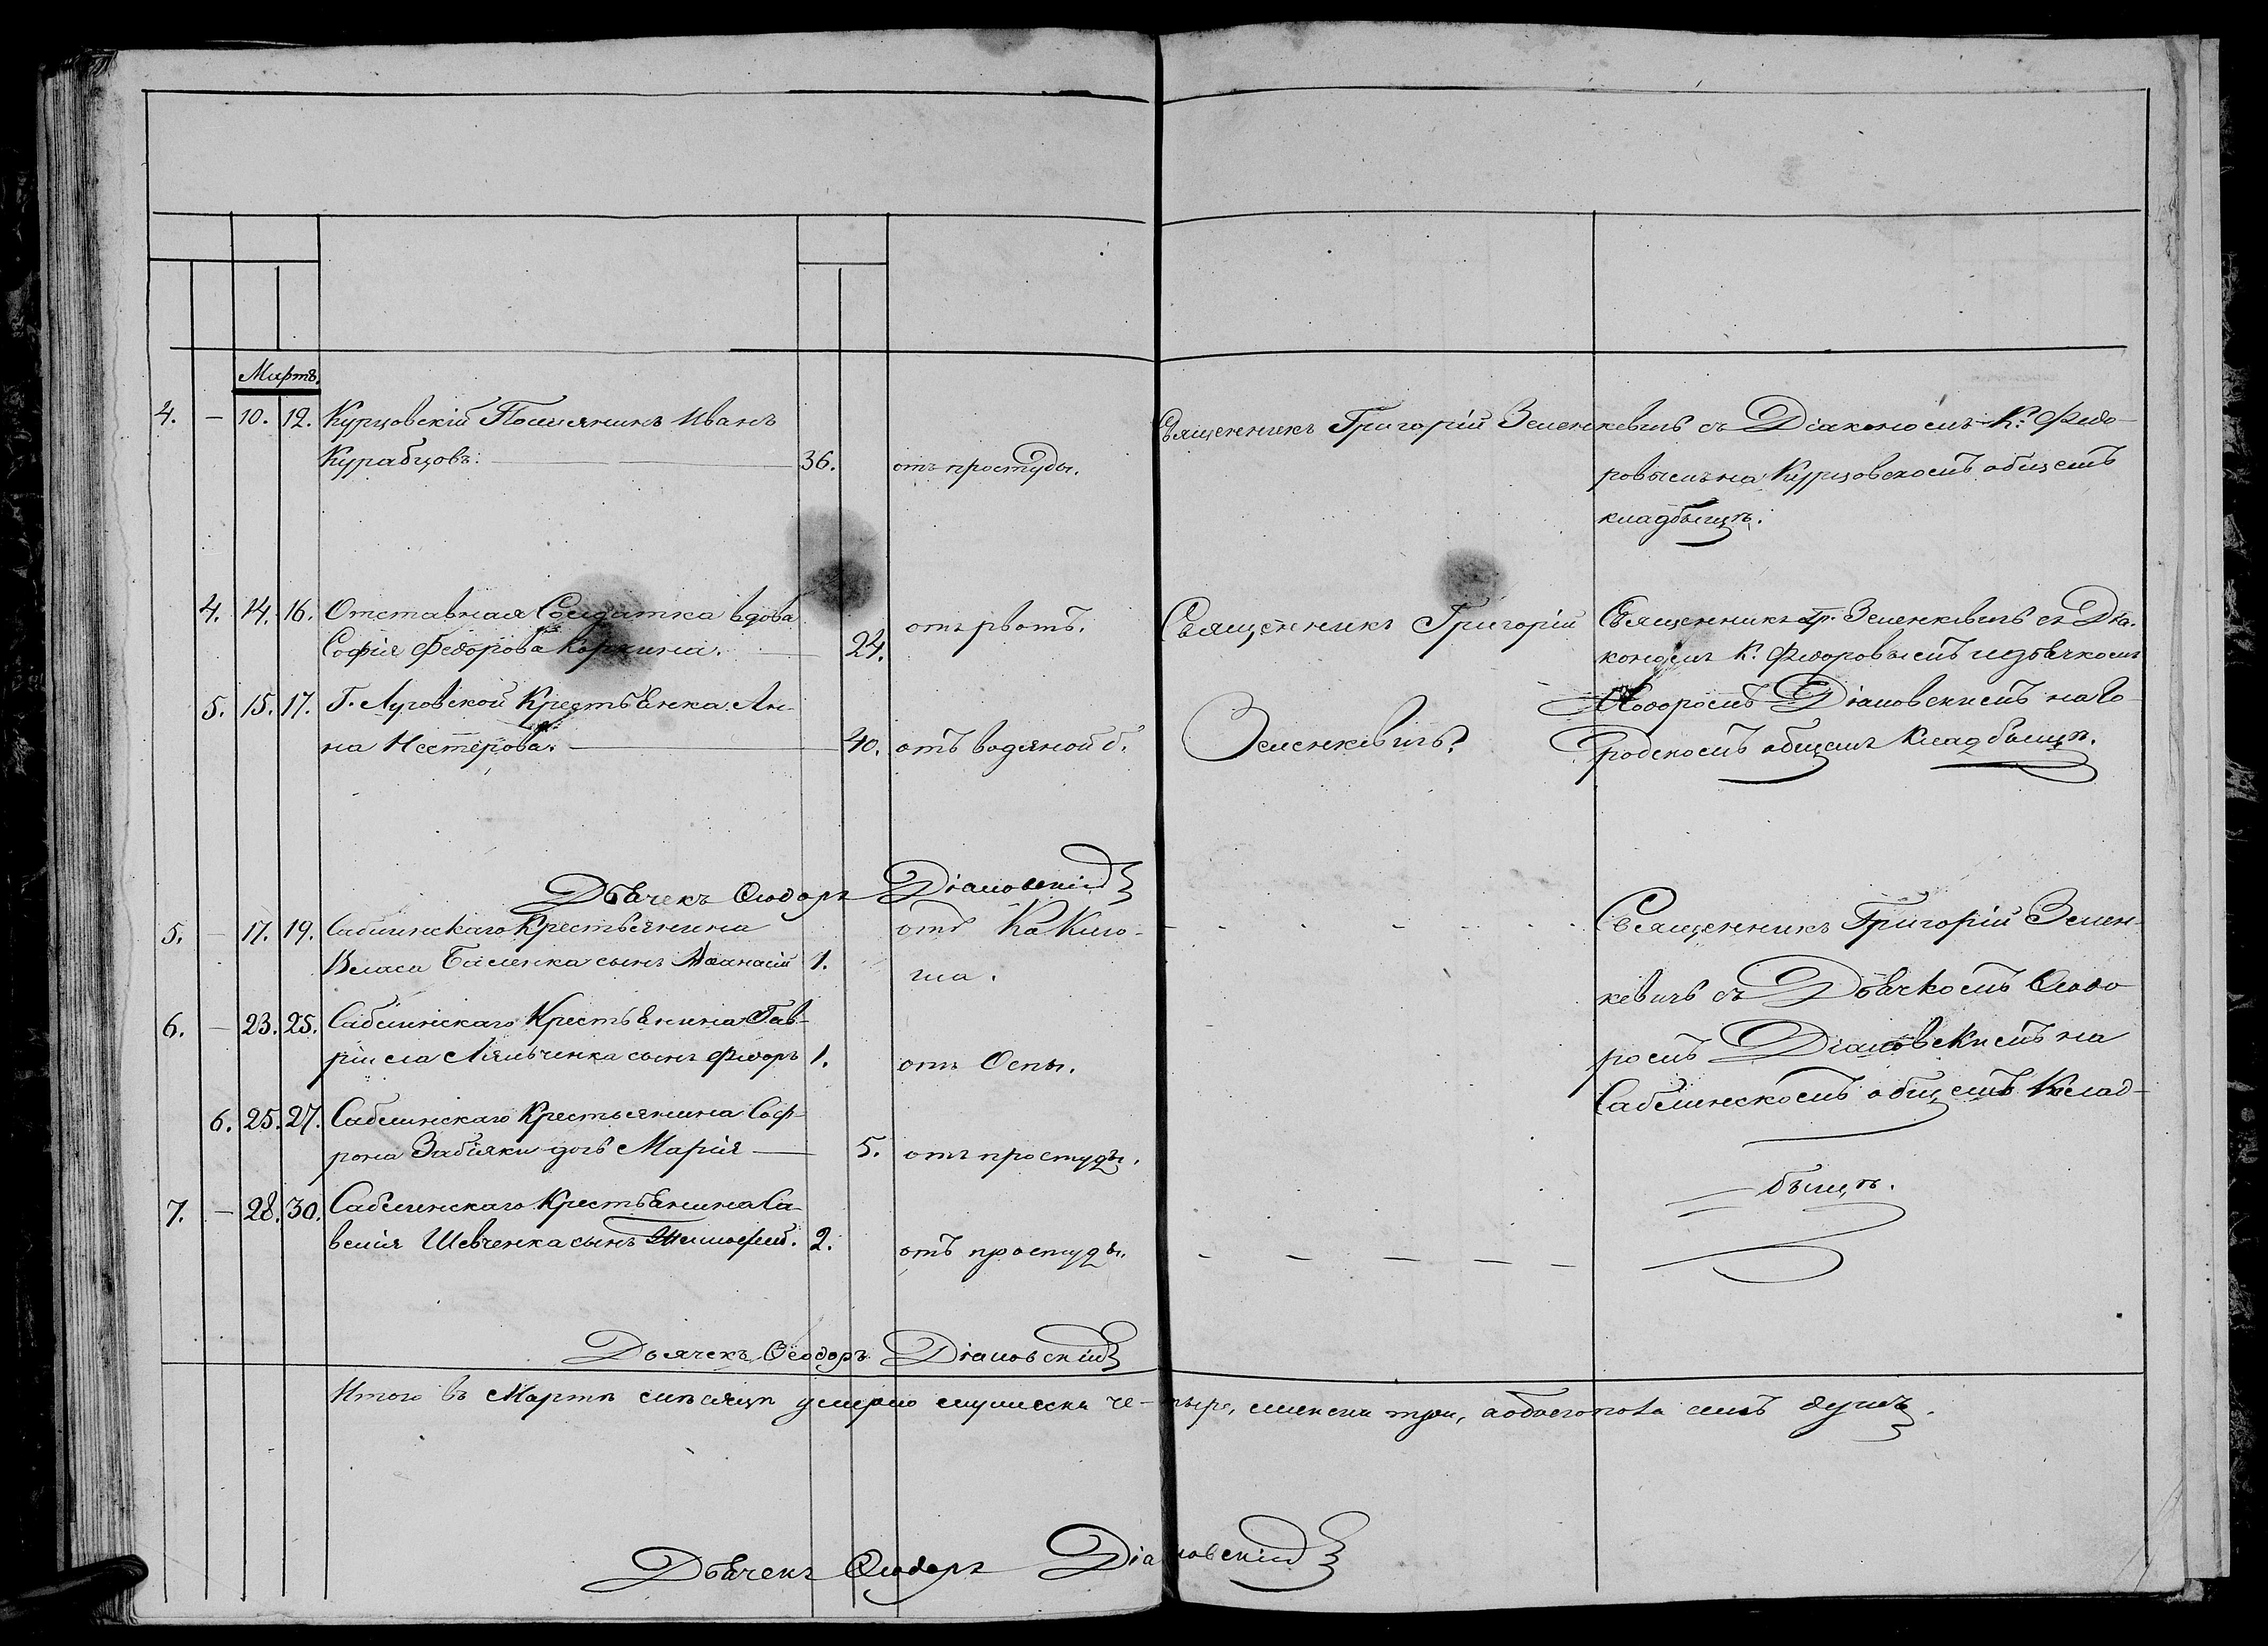 Мартъ.
4. — 10. 12. Курцовскій Поселянинъ Иванъ
Курабцовъ: 36. отъ простуды.
Священникъ Григорій Зеленкевичъ съ Діакономъ К. Федо-
ровымъ на Курцовскомъ общемъ
кладбыщѣ.
4. 14. 16. Отставная Солдатка вдова
Софія Федорова Коркина. 24. отъ рвотъ.
5. 15. 17. Г. Луговской Крестьянка Ан-
на Нестерова. 40. отъ водяной б.
Священникъ Григорій
Зеленкевичъ.
Священникъ Гр. Зеленкевичъ съ Діа-
кономъ К. Федоровымъ и дьячкомъ
Ѳеодоромъ Діановскимъ на Го-
родскомъ общемъ Кладбыщѣ.
Дьячекъ Ѳеодоръ Діановскій
5. — 17. 19. Саблинскаго Крестьянина
Власа Биленка сынъ Афанасій 1. отъ Каклю-
ша.
6. — 23. 25. Саблинскаго Крестьянина Гав-
ріила Ляльченка сынъ Федоръ 1. отъ Оспы.
6. 25. 27. Саблинскаго Крестьянина Соф-
рона Забіяки дочь Марія 5. отъ простуды.
7. — 28. 30. Саблинскаго Крестьянина Са-
велія Шевченка сынъ Тимофей. 2. отъ простуды.
Священникъ Григорій Зелен-
кевичъ съ Дьячкомъ Ѳеодо-
ромъ Діановскимъ на
Саблинскомъ общемъ Клад-
быщѣ.
Дьячекъ Ѳеодоръ Діановскій
Итого въ Мартѣ мѣсяцѣ умерло мужеска че-тыре, женска три, а обоего пола семь душъ.
Дьячекъ Ѳеодоръ Діановскій